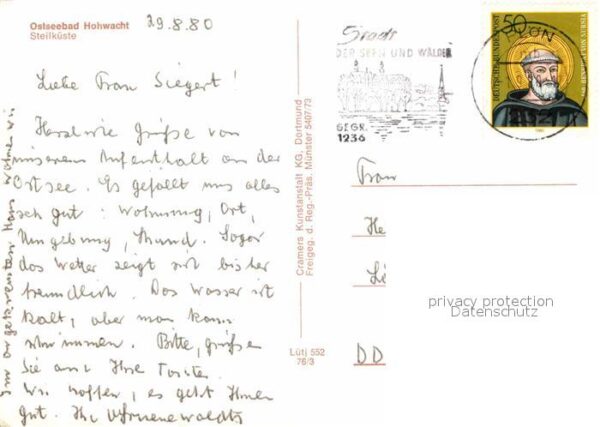 Ostseebad Hohwacht
Steilküste
29.8.80
Liebe Frau Siegert!
Herzliche Grüße von
unserem Aufenthalt an der
Ostsee. Es gefällt uns alles
sehr gut: Wohnung, Ort,
Umgebung, Strand. Sogar
das Wetter zeigt sich bisher
freundlich. Das Wasser ist
kalt, aber man kann
schwimmen. Bitte, grüßen
Sie auch Ihre Tochter.
Wir hoffen, es geht Ihnen
gut. Ihre
Im angekreuzten Haus wohnen wir
Cramers Kunstanstalt KG, Dortmund
Freigeg. d. Reg.-Präs. Münster 5407/73
Lütj 552
76/3
Stadt
DER SEEN UND WÄLDER
GEGR.
1236
PLÖN
2320
50
DEUTSCHE BUNDESPOST
BENEDIKT VON NURSIA
1980
Frau
He
Lé
DD
privacy protection
Datenschutz